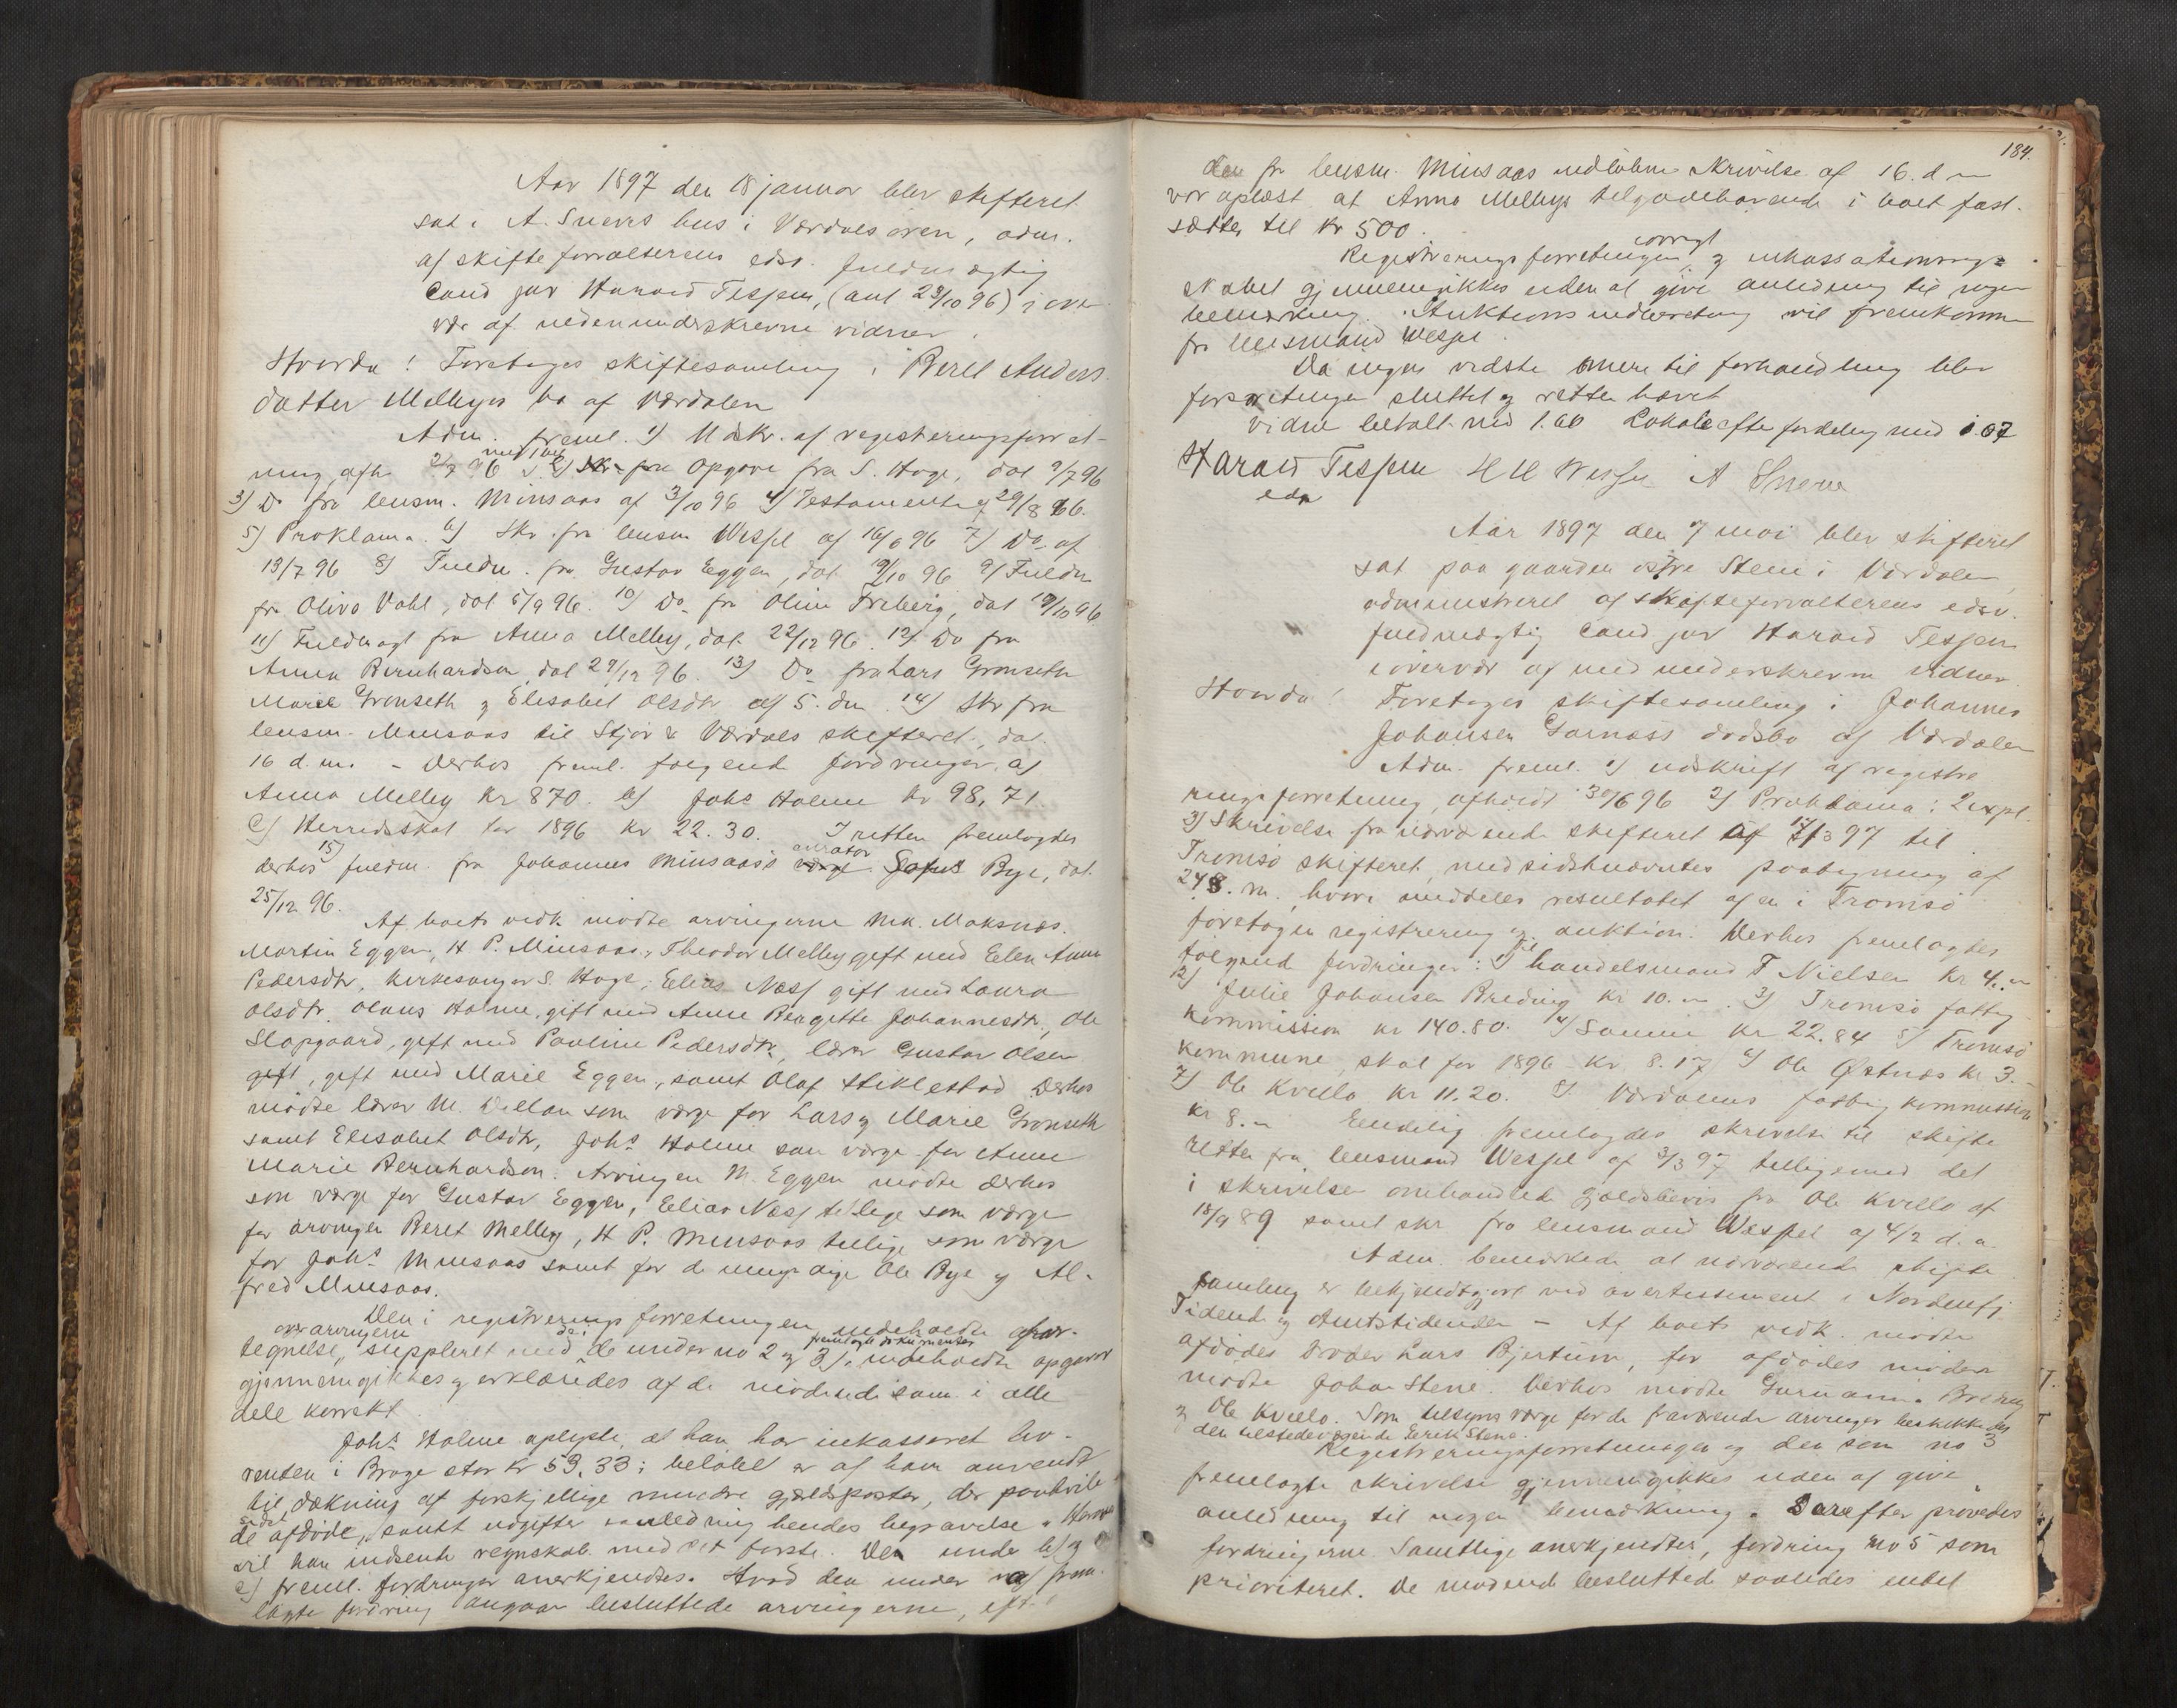 Aar 1897 den 18 januar blev skifteret
sat i A. Sneves hus i Værdalsøren, adm.
af skifteforvalterens edsv. fuldmægtig
Cand jur Harald Tessem, (ant 23/10 96) i over
vær af nedenunderskrevne vidner.
Hvorda! Foretoges skiftesamling i Beret Anders
datter Melbyes bo af Værdalen
Adm. freml. 1) Udskr. af registreringsforret-
ning afh. 2/7 96 2) Opgave fra S. Hage, dat 9/7 96
3) Do fra lensm. Minsaas af 3/10 96 4) Testamente af 29/8 86.
5) Proklama. 6) Skr. fra lensm Wessel af 16/6 96 7) Do af
13/7 96 8) Fuldm. fra Gustav Eggen, dat 19/10 96 9) Fuldm
fra Oliva Dahl, dat 5/9 96. 10) Do fra Oline Friberg, dat 19/10 96
11) Fuldmagt fra Anna Melby, dat. 22/12 96. 12) Do fra
Anna Bernhardson dat 29/12 96. 13) Do fra Lars Grønseth
Marie Grønseth & Elisabet Olsdtr af 5. dm. 14) Skr fra
lensm. Minsaas til Stjør & Værdals skifteret, dat.
16 d. m. - Derhos freml. følgende fordringer. a)
Anna Melby kr 870. b) Johs Holme kr 98,71
c) Herredsskat for 1896 kr 22.30. I retten fremlagdes
derhos 15) fuldm. fra Johannes Minsaas's curator Bye, dat.
25/12 96.
Af boets vedk. mødte arvingerne Mk. Maksnæs.
Martin Eggen, H P. Minsaas, Theodor Melby gift med Elen Anna
Pedersdtr, kirkesanger S. Hage, Elias Næss gift med Laura
Olsdtr. Olaus Holme, gift med Anne Bergitte Johannesdtr, Ole
Slapgaard, gift med Pauline Pedersdtr, lærer Gustav Olsen
gift, gift med Marie Eggen, samt Olaf Stiklestad. Derhos
mødte lærer M. Dillan som værge for Lars & Marie Grønseth
samt Elisabet Olsdtr, Johs Holme som værge for Anne
Marie Bernhardson. Arvingen M. Eggen mødte derhos
som værge for Gustav Eggen, Elias Næss tillige som værge
for arvingen Beret Melby, H P. Minsaas tillige som værge
for Johs Minsaas samt for de umyndige Ole Bye & Al-
fred Minsaas.
Den i registreringsforretningen indeholdte for-
tegnelse over arvingerne, suppleret med de i de under no 2 & 3) fremlagte dokumenter indeholdte opgaver
gjennemgikkes & erklæredes af de mødende som i alle
dele korrekt.
Johs Holme oplyste, at han har inkasseret liv-
renten i Brage stor kr 53,33; beløbet er af ham anvendt
til dækning af forskjellige mindre gjældsposter, der paahvile
de afdøde, samt udgifter i anledning hendes begravelse. Herover
vil han indsende regnskab med det første. Den under b) &
c) freml. fordringer anerkjendtes. Hvad den under a) frem-
lagte fordring angaar besluttede arvingerne, eft
184.
den fra lensm. Minsaas indløbne skrivelse af 16. d m
var oplæst at Anna Melbys tilgodehavende i boet fast-
sættes til kr 500.
Registreringsforretningen &
skabet gjennemgikkes uden at give anledning til nogen
bemærkning. Auktionsindberetning vil fremkomme
fra lensmand Wessel.
Da ingen vidste mere til forhandling blev
forretningen sluttet & retten hævet
Vidne betalt med 1.60 Lokale efter fordeling med 1.07
Harald Tessem H H Wessel A Sneve
edsv
Aar 1897 den 7 mai blev skifteret
sat paa gaarden østre Stene i Værdalen
administreret af skifteforvalterens edsv.
fuldmægtig Cand jur Harald Tessem
i overvær af med underskrevne vidner.
Hvorda! Foretoges skiftesamling i Johannes
Johansen Garnæs's dødsbo af Værdalen
Adm. freml. 1) udskrift af registre
ringsforretning, afholdt 30/6 96 2) Proklama i 2 expl.
3) Skrivelse fra nærværende skifteret af 17/3 97 til
Tromsø skifteret, med sidstnævntes paategning af
24 s. m. hvori meddeles resultatet af en i Tromsø
foretagen registrering & auktion. Derhos fremlagdes
følgende fordringer: 1) fra handelsmand F Nielsen kr 4. "
2) Julie Johansen Breding kr 10. " 3) Tromsø fattig
kommission kr 140.80. 4) Samme kr 22.84 5) Tromsø
kommune, skat for 1896 kr. 8.17 6) Ole Østnæs kr 3.-
7) Ole Kvello kr 11.20. 8) Værdalens fattigkommission
kr 8. " Endelig fremlagdes skrivelse til skifte
retten fra lensmand Wessel af 3/3 97 tilligemed det
i skrivelsen omhandlede gjældsbevis fra Ole Kvello af
18/9 89 samt skr fra lensmand Wessel af 4/2 d. a.
Adm. bemærkede at nærværende skifte
samling er bekjendtgjort ved avertissement i Nordenfj.
Tidende & Amtstidenden - Af boets vedk. mødte
afdødes broder Lars Bjertum, for afdødes moder
mødte Johan Stene. Derhos mødte Breding
& Ole Kvello. Som tilsynsværge for de fraværende arvinger beskikkedes
den tilstedeværende Eerik Stene.
Registreringsforretningen og den som no 3
fremlagte skrivelse gjennemgikkes uden at give
anledning til nogen bemærkning. Derefter prøvedes
fordringerne. Samtlige anerkjendtes, fordring no 5 som
prioriteret. De mødende besluttede saaledes enkel